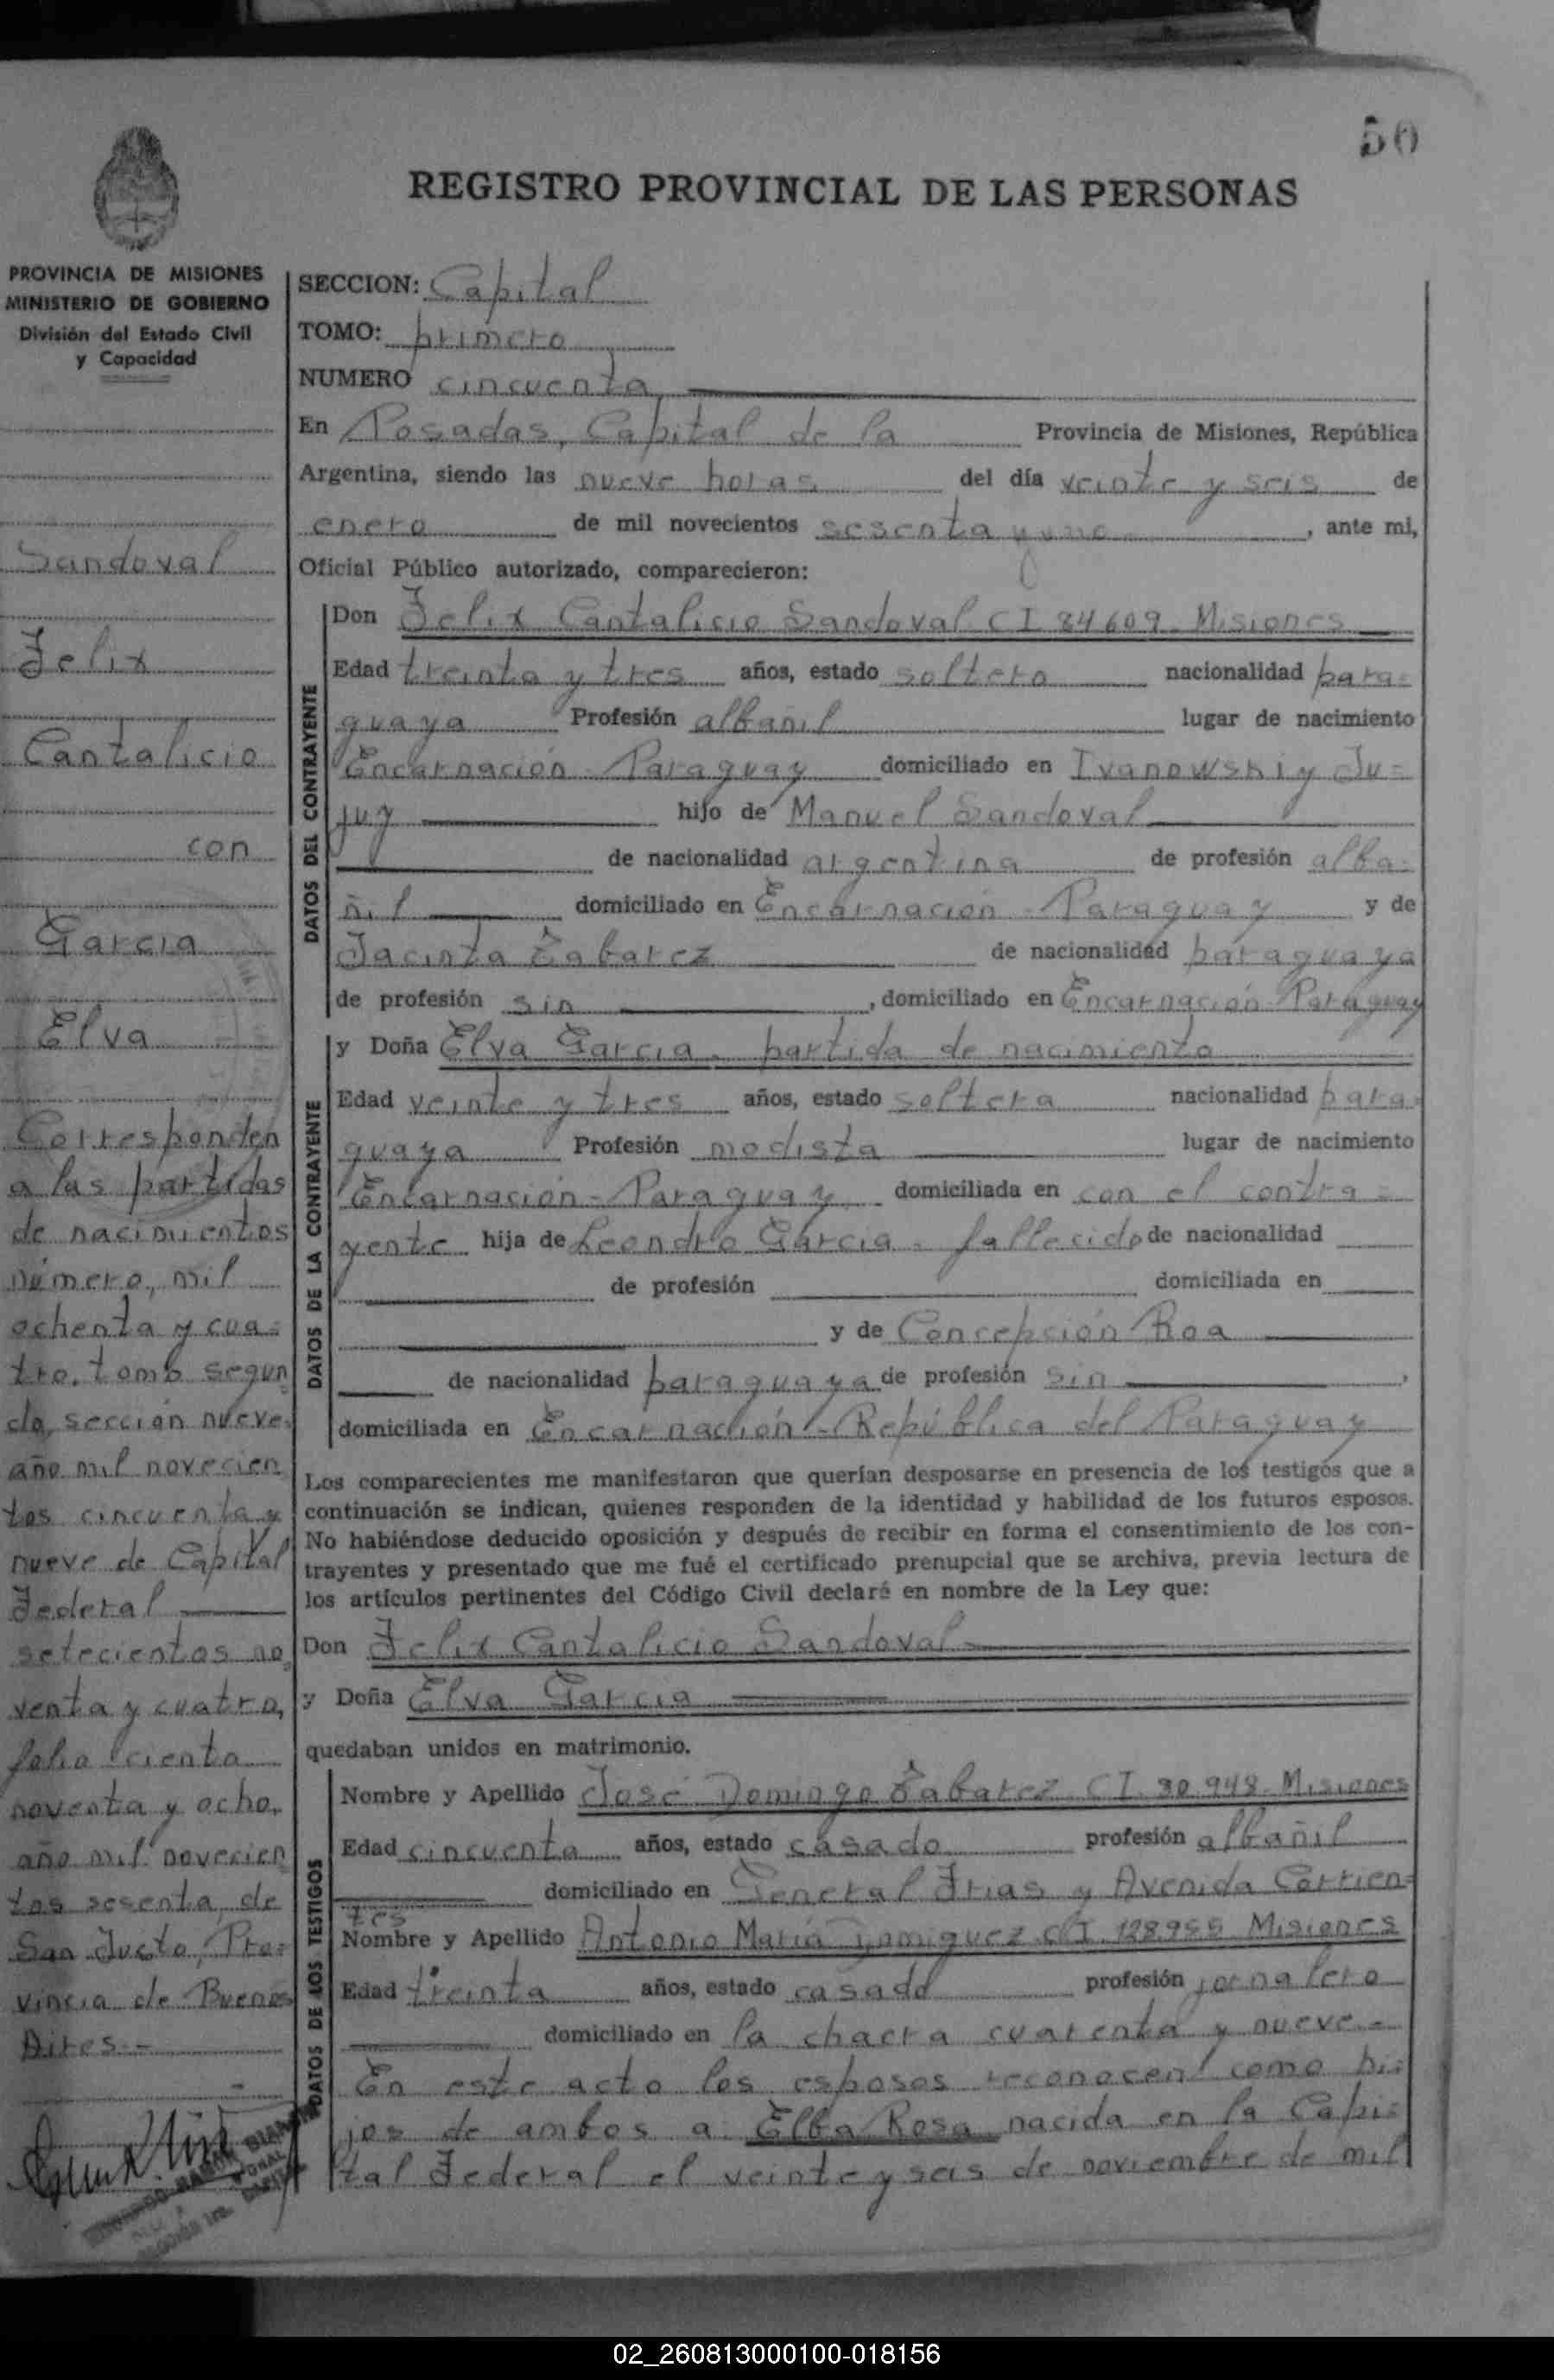 50
REGISTRO PROVINCIAL DE LAS PERSONAS
PROVINCIA DE MISIONES
MINISTERIO DE GOBIERNO
División del Estado Civil
y Capacidad
Sandoval
Felix
Cantalicio
con
Garcia
Elva
Corresponden
a las partidas
de nacimientos
número, mil
ochenta y cua=
tro, tomo segun
do, sección nueve,
año mil novecien
tos cincuenta y
nueve de Capital
Federal
setecientos no
venta y cuatro,
folio ciento
noventa y ocho,
año mil novecien
tos sesenta, de
San Justo, Pro=
vincia de Buenos
Aires.-
SECCION: Capital
TOMO: primero
NUMERO cincuenta
En Posadas, Capital de la Provincia de Misiones, República
Argentina, siendo las nueve horas del día veinte y seis de
enero de mil novecientos sesenta y uno, ante mi,
Oficial Público autorizado, comparecieron:
DATOS DEL CONTRAYENTE
Don Felix Cantalicio Sandoval CI 84609 Misiones
Edad treinta y tres años, estado soltero nacionalidad para=
guaya Profesión albañil lugar de nacimiento
Encarnación - Paraguay domiciliado en Ivanowski y Ju=
juy hijo de Manuel Sandoval
de nacionalidad argentina de profesión alba=
ñil domiciliado en Encarnación - Paraguay y de
Jacinta Zabarez de nacionalidad paraguaya
de profesión sin, domiciliado en Encarnación Paraguay
DATOS DE LA CONTRAYENTE
y Doña Elva Garcia - partida de nacimiento
Edad veinte y tres años, estado soltera nacionalidad para=
guaya Profesión modista lugar de nacimiento
Encarnación - Paraguay domiciliada en con el contra=
yente hija de Leondro Garcia - fallecido de nacionalidad
de profesión domiciliada en
y de Concepción Roa
de nacionalidad paraguaya de profesión sin,
domiciliada en Encarnación - República del Paraguay
Los comparecientes me manifestaron que querían desposarse en presencia de los testigos que a
continuación se indican, quienes responden de la identidad y habilidad de los futuros esposos.
No habiéndose deducido oposición y después de recibir en forma el consentimiento de los con-
trayentes y presentado que me fué el certificado prenupcial que se archiva, previa lectura de
los artículos pertinentes del Código Civil declaré en nombre de la Ley que:
Don Felix Cantalicio Sandoval
y Doña Elva Garcia
quedaban unidos en matrimonio.
DATOS DE LOS TESTIGOS
Nombre y Apellido José Domingo Zabarez CI. 30.948 Misiones
Edad cincuenta años, estado casado profesión albañil
domiciliado en General Frias y Avenida Corrien=
tes
Nombre y Apellido Antonio Maria CI. 128.955 Misiones
Edad treinta años, estado casado profesión jornalero
domiciliado en la chacra cuarenta y nueve.-
En este acto los esposos reconocen como hi=
jos de ambos a Elba Rosa nacida en la Capi=
tal Federal el veinte y seis de noviembre de mil
02_260813000100-018156